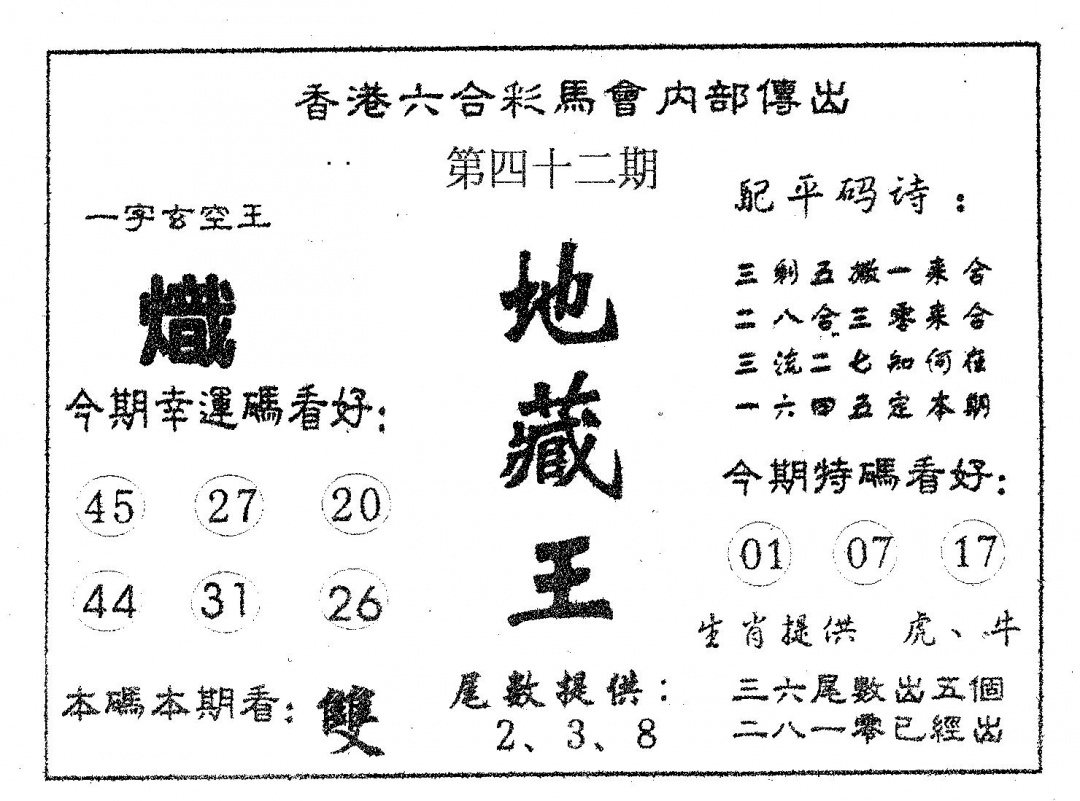 香港六合彩馬會內部傳出
第四十二期
一字玄空王
熾
今期幸運碼看好:
45 27 20
44 31 26
本碼本期看:雙
地
藏
王
尾數提供:
2、3、8
配平码诗:
三剩五搬一来合
二八合三零来合
三流二七知何在
一六四五定本期
今期特碼看好:
01 07 17
生肖提供 虎、牛
三六尾數出五個
二八一零已經出